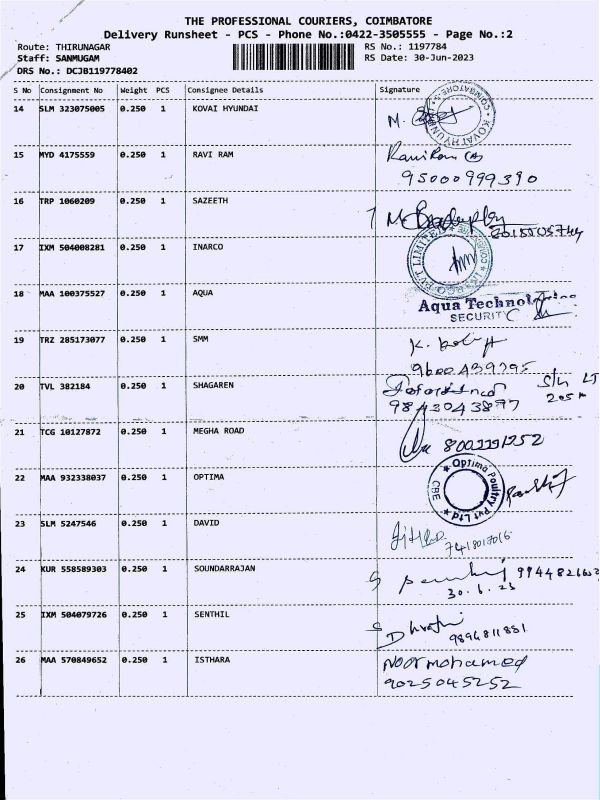 THE PROFESSIONAL COURIERS, COIMBATORE
Delivery Runsheet - PCS - Phone No.:0422-3505555 - Page No.:2
Route: THIRUNAGAR RS No.: 1197784
Staff: SANMUGAM RS Date: 30-Jun-2023
DRS No.: DCJB119778402
S No Consignment No Weight PCS Consignee Details Signature
14 SLM 323075005 0.250 1 KOVAI HYUNDAI
15 MYD 4175559 0.250 1 RAVI RAM Ravi Ram
95000999390
16 TRP 1060209 0.250 1 SAZEETH
17 IXM 504008281 0.250 1 INARCO
18 MAA 100375527 0.250 1 AQUA Aqua Technologies
SECURITY
19 TRZ 285173077 0.250 1 SMM
20 TVL 382184 0.250 1 SHAGAREN
9843043877
21 TCG 10127872 0.250 1 MEGHA ROAD
22 MAA 932338037 0.250 1 OPTIMA Optima Poultry Pvt Ltd CBE
23 SLM 5247546 0.250 1 DAVID
7418017016
24 KUR 558589303 0.250 1 SOUNDARRAJAN
30.6.23
25 IXM 504079726 0.250 1 SENTHIL
9894811831
26 MAA 570849652 0.250 1 ISTHARA Noormohamed
9025045252